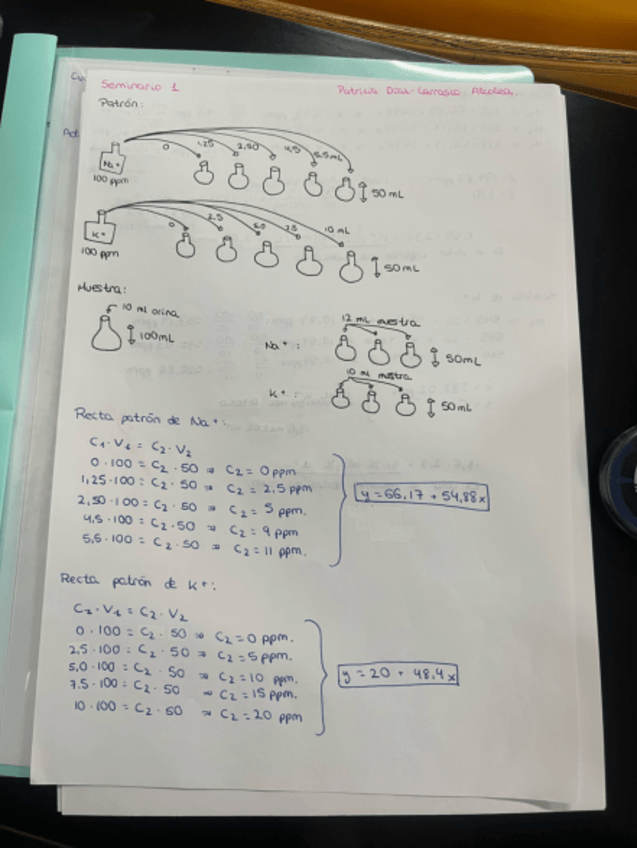 Seminario 1
Patrón:
0 1,25 2,50 4,5 5,5 mL
Na+
100 ppm
50 mL
0 2,5 5,0 7,5 10 mL
K+
100 ppm
50 mL
Muestra:
10 mL orina
100mL
12 mL muestra
Na+:
50mL
10 mL muestra
K+:
50mL
Recta patrón de Na+:
C1·V1 = C2·V2
0·100 = C2·50 ⇒ C2 = 0 ppm
1,25·100 = C2·50 ⇒ C2 = 2,5 ppm
2,50·100 = C2·50 ⇒ C2 = 5 ppm.
4,5·100 = C2·50 ⇒ C2 = 9 ppm
5,5·100 = C2·50 ⇒ C2 = 11 ppm.
y = 66,17 + 54,88x
Recta patrón de K+:
C2·V1 = C2·V2
0·100 = C2·50 ⇒ C2 = 0 ppm.
2,5·100 = C2·50 ⇒ C2 = 5 ppm.
5,0·100 = C2·50 ⇒ C2 = 10 ppm.
7.5·100 = C2·50 ⇒ C2 = 15 ppm.
10·100 = C2·50 ⇒ C2 = 20 ppm
y = 20 + 48,4x